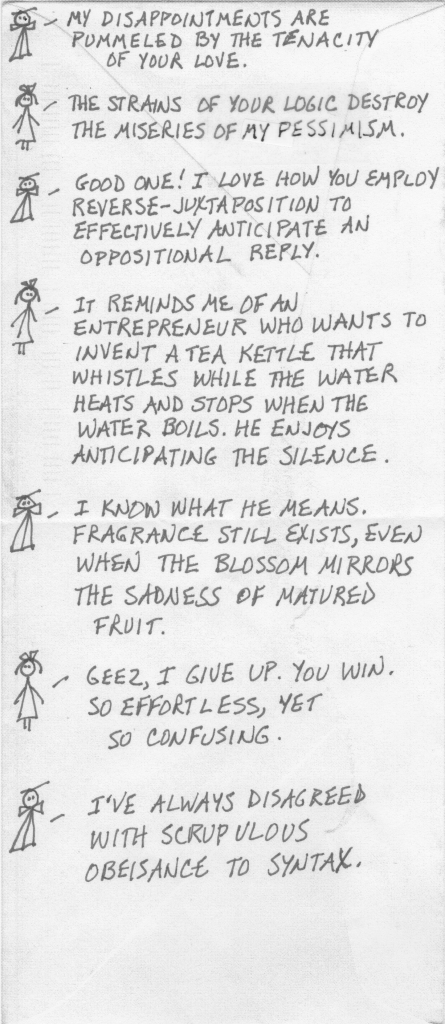 MY DISAPPOINTMENTS ARE
PUMMELED BY THE TENACITY
OF YOUR LOVE.
THE STRAINS OF YOUR LOGIC DESTROY
THE MISERIES OF MY PESSIMISM.
GOOD ONE! I LOVE HOW YOU EMPLOY
REVERSE-JUXTAPOSITION TO
EFFECTIVELY ANTICIPATE AN
OPPOSITIONAL REPLY.
IT REMINDS ME OF AN
ENTREPRENEUR WHO WANTS TO
INVENT A TEA KETTLE THAT
WHISTLES WHILE THE WATER
HEATS AND STOPS WHEN THE
WATER BOILS. HE ENJOYS
ANTICIPATING THE SILENCE.
I KNOW WHAT HE MEANS.
FRAGRANCE STILL EXISTS, EVEN
WHEN THE BLOSSOM MIRRORS
THE SADNESS OF MATURED
FRUIT.
GEEZ, I GIVE UP. YOU WIN.
SO EFFORTLESS, YET
SO CONFUSING.
I'VE ALWAYS DISAGREED
WITH SCRUPULOUS
OBEISANCE TO SYNTAX.